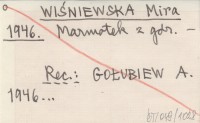 WIŚNIEWSKA Mira
1946. Marmołek z gór. —
Rec.: GOŁUBIEW A.
1946...